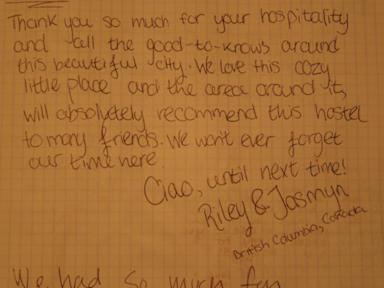 Thank you so much for your hospitality
and all the good-to-knows around
this beautiful city. We love this cozy
little place and the area around it,
will absoletely recommend this hostel
to many friends. We won't ever forget
our time here.
Ciao, until next time!
Riley & Jasmyn
British Columbia, Canada
We had so much fun